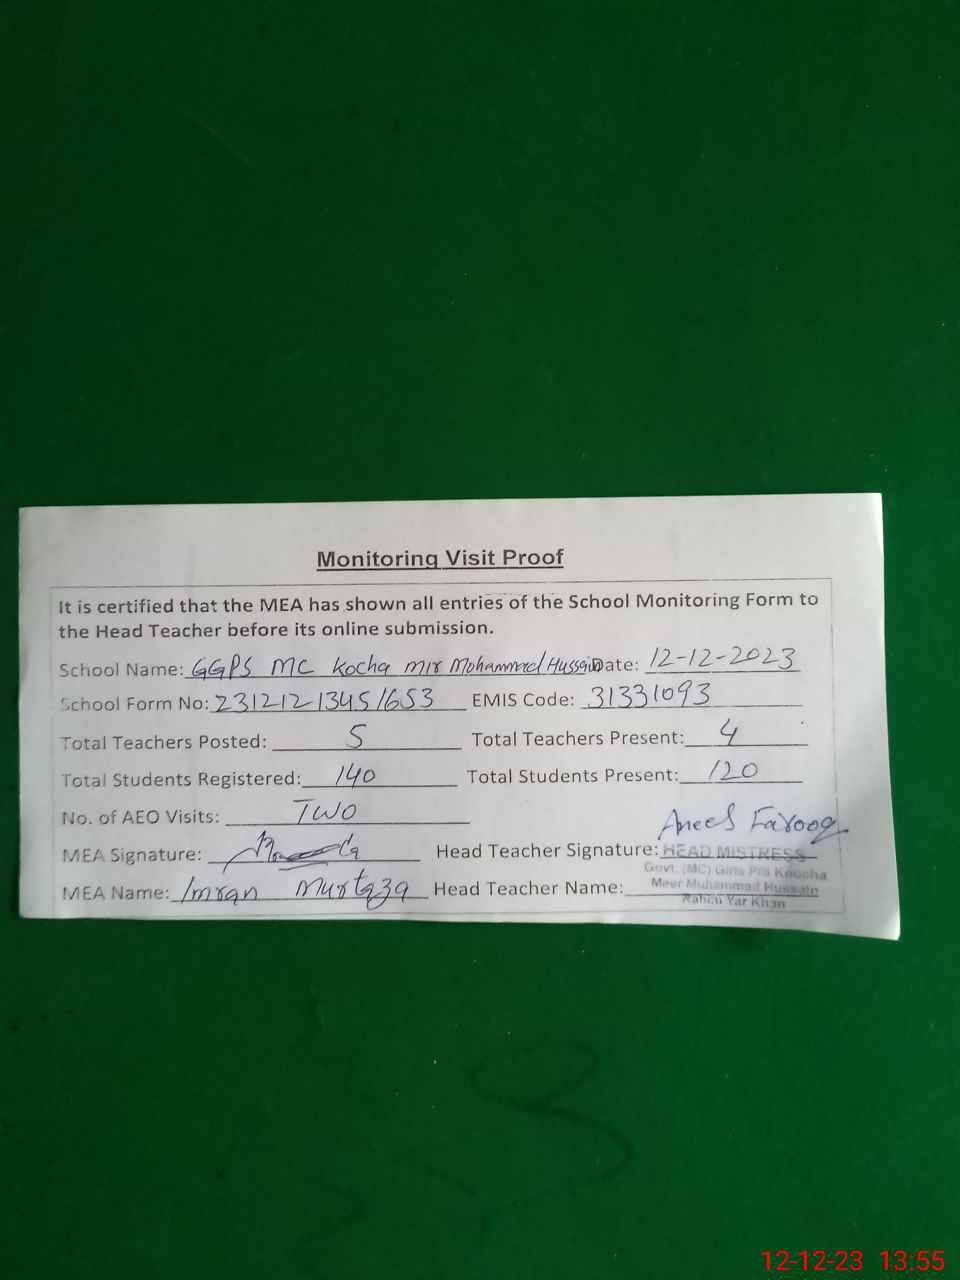 Monitoring Visit Proof
It is certified that the MEA has shown all entries of the School Monitoring Form to
the Head Teacher before its online submission.
School Name: GGPS MC Kocha mir Mohammad Hussain Date: 12-12-2023
School Form No: 231212 1345 1653 EMIS Code: 31331093
Total Teachers Posted: 5 Total Teachers Present: 4
Total Students Registered: 140 Total Students Present: 120
No. of AEO Visits: Two
Anees Farooq
MEA Signature: Head Teacher Signature: HEAD MISTRESS
Govt. (MC) Girls P/S Koocha
MEA Name: Imran Murtaza Head Teacher Name: Meer Muhammad Hussain
Rahim Yar Khan
12-12-23 13:55